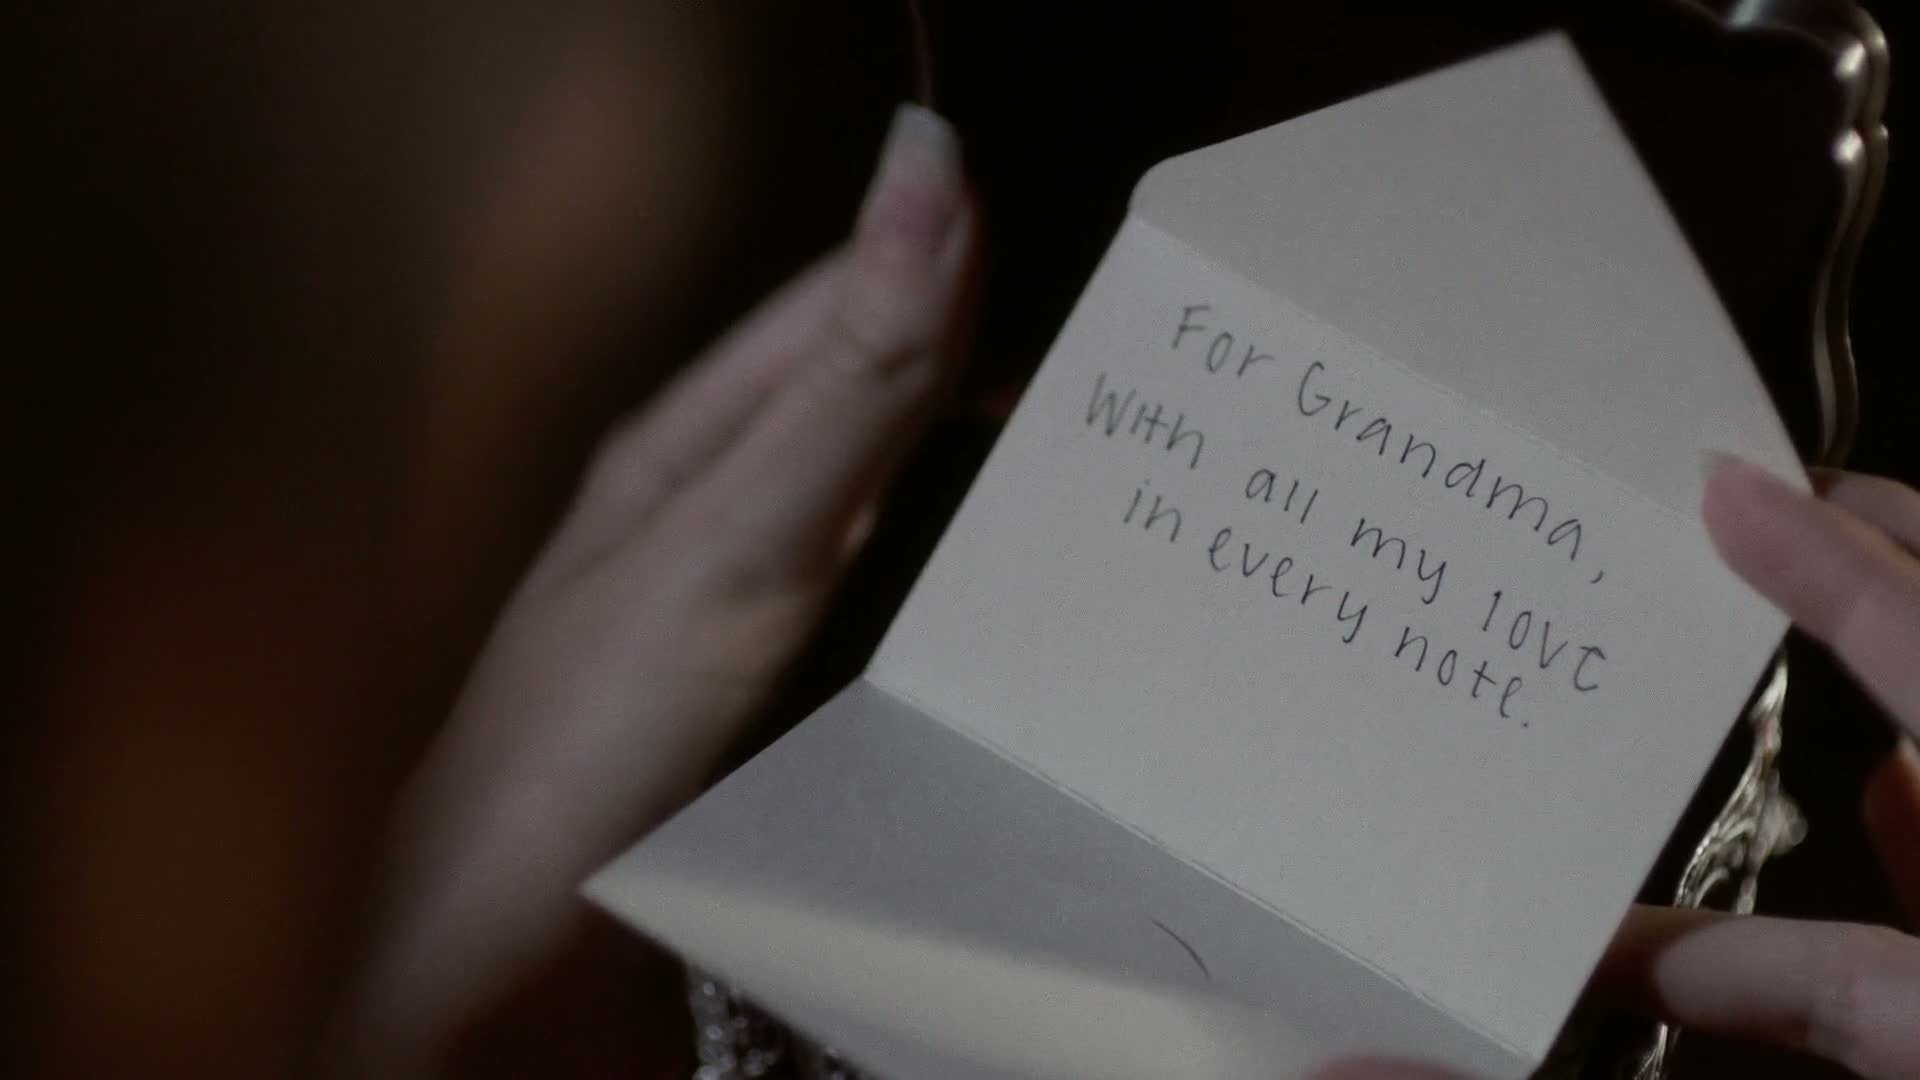 For Grandma,
With all my love
in every note.